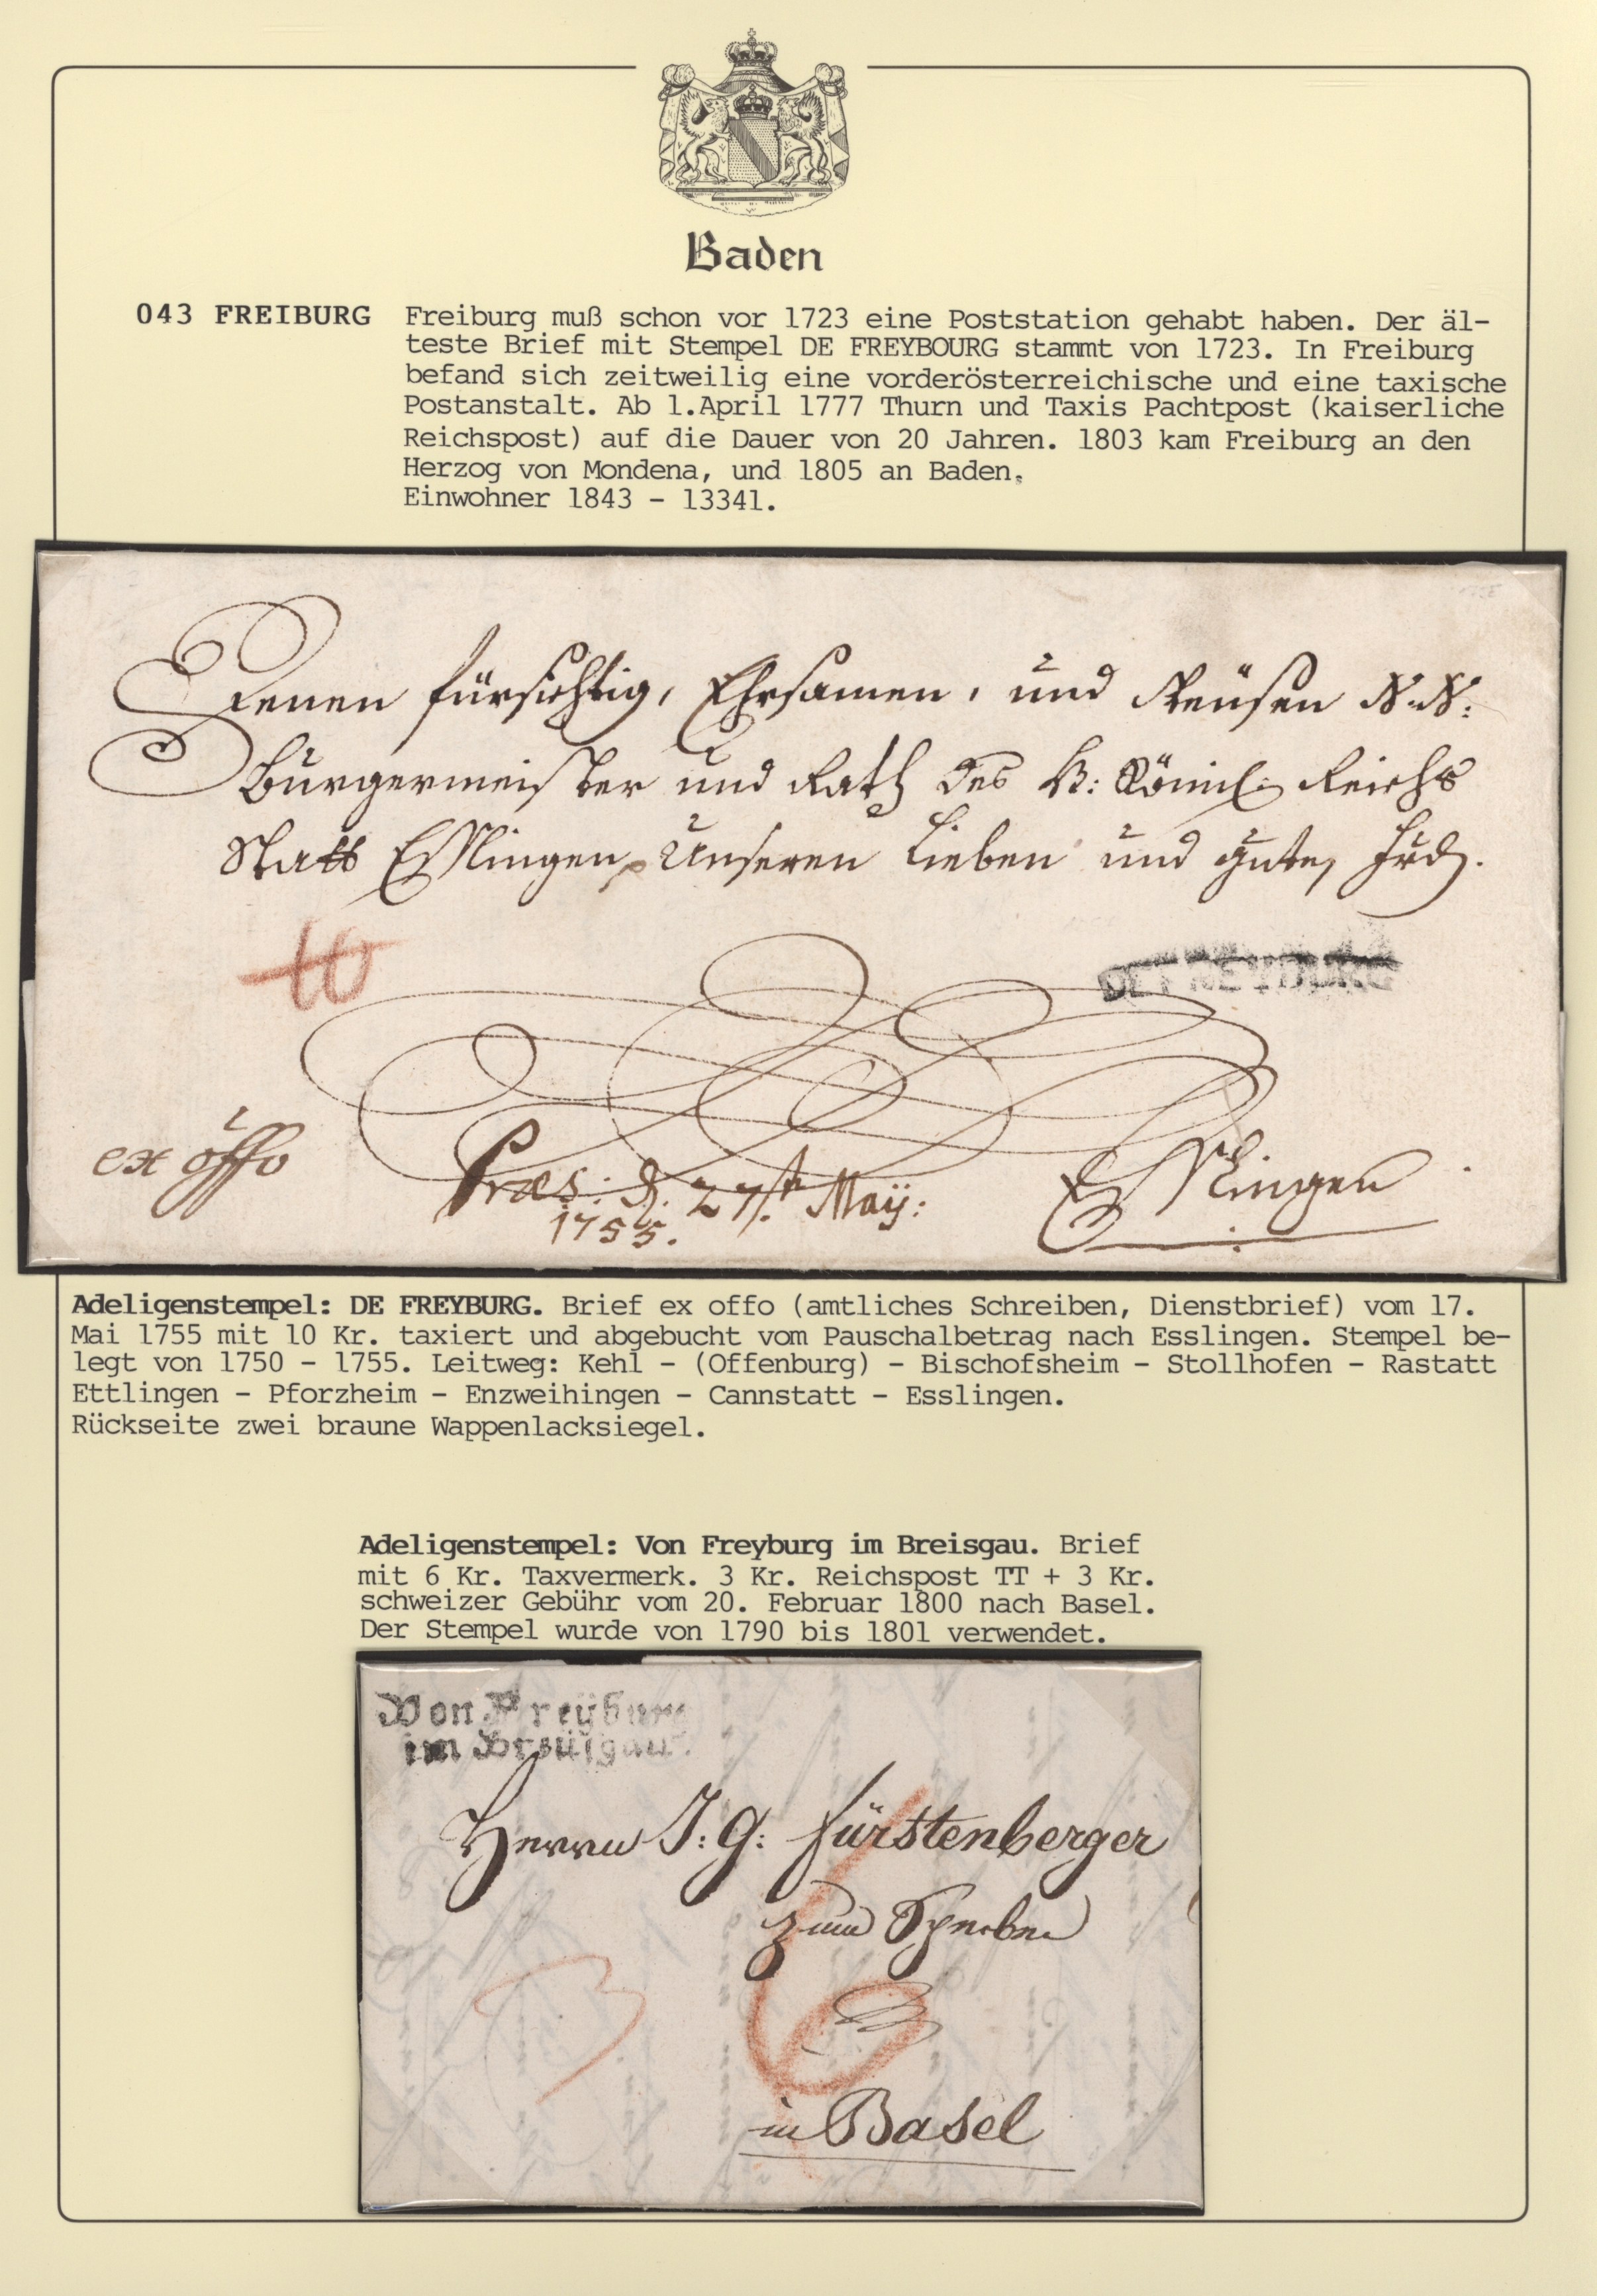 Baden
043 FREIBURG Freiburg muß schon vor 1723 eine Poststation gehabt haben. Der äl-
teste Brief mit Stempel DE FREYBOURG stammt von 1723. In Freiburg
befand sich zeitweilig eine vorderösterreichische und eine taxische
Postanstalt. Ab 1.April 1777 Thurn und Taxis Pachtpost (kaiserliche
Reichspost) auf die Dauer von 20 Jahren. 1803 kam Freiburg an den
Herzog von Mondena, und 1805 an Baden.
Einwohner 1843 - 13341.
Denen fürsichtig, Ehrsamen, und Weüsen N.N:
Burgermeister und Rath des H: Römi: Reichs
Statt Esslingen Unseren Lieben und guten
10
DE FREYBURG
ex offo
Præs: d. 27.t May:
1755.
Esslingen
Adeligenstempel: DE FREYBURG. Brief ex offo (amtliches Schreiben, Dienstbrief) vom 17.
Mai 1755 mit 10 Kr. taxiert und abgebucht vom Pauschalbetrag nach Esslingen. Stempel be-
legt von 1750 - 1755. Leitweg: Kehl - (Offenburg) - Bischofsheim - Stollhofen - Rastatt
Ettlingen - Pforzheim - Enzweihingen - Cannstatt - Esslingen.
Rückseite zwei braune Wappenlacksiegel.
Adeligenstempel: Von Freyburg im Breisgau. Brief
mit 6 Kr. Taxvermerk. 3 Kr. Reichspost TT + 3 Kr.
schweizer Gebühr vom 20. Februar 1800 nach Basel.
Der Stempel wurde von 1790 bis 1801 verwendet.
Von Freyburg
im Breisgau.
Herrn J: G: Fürstenberger
zum
3 6
in Basel